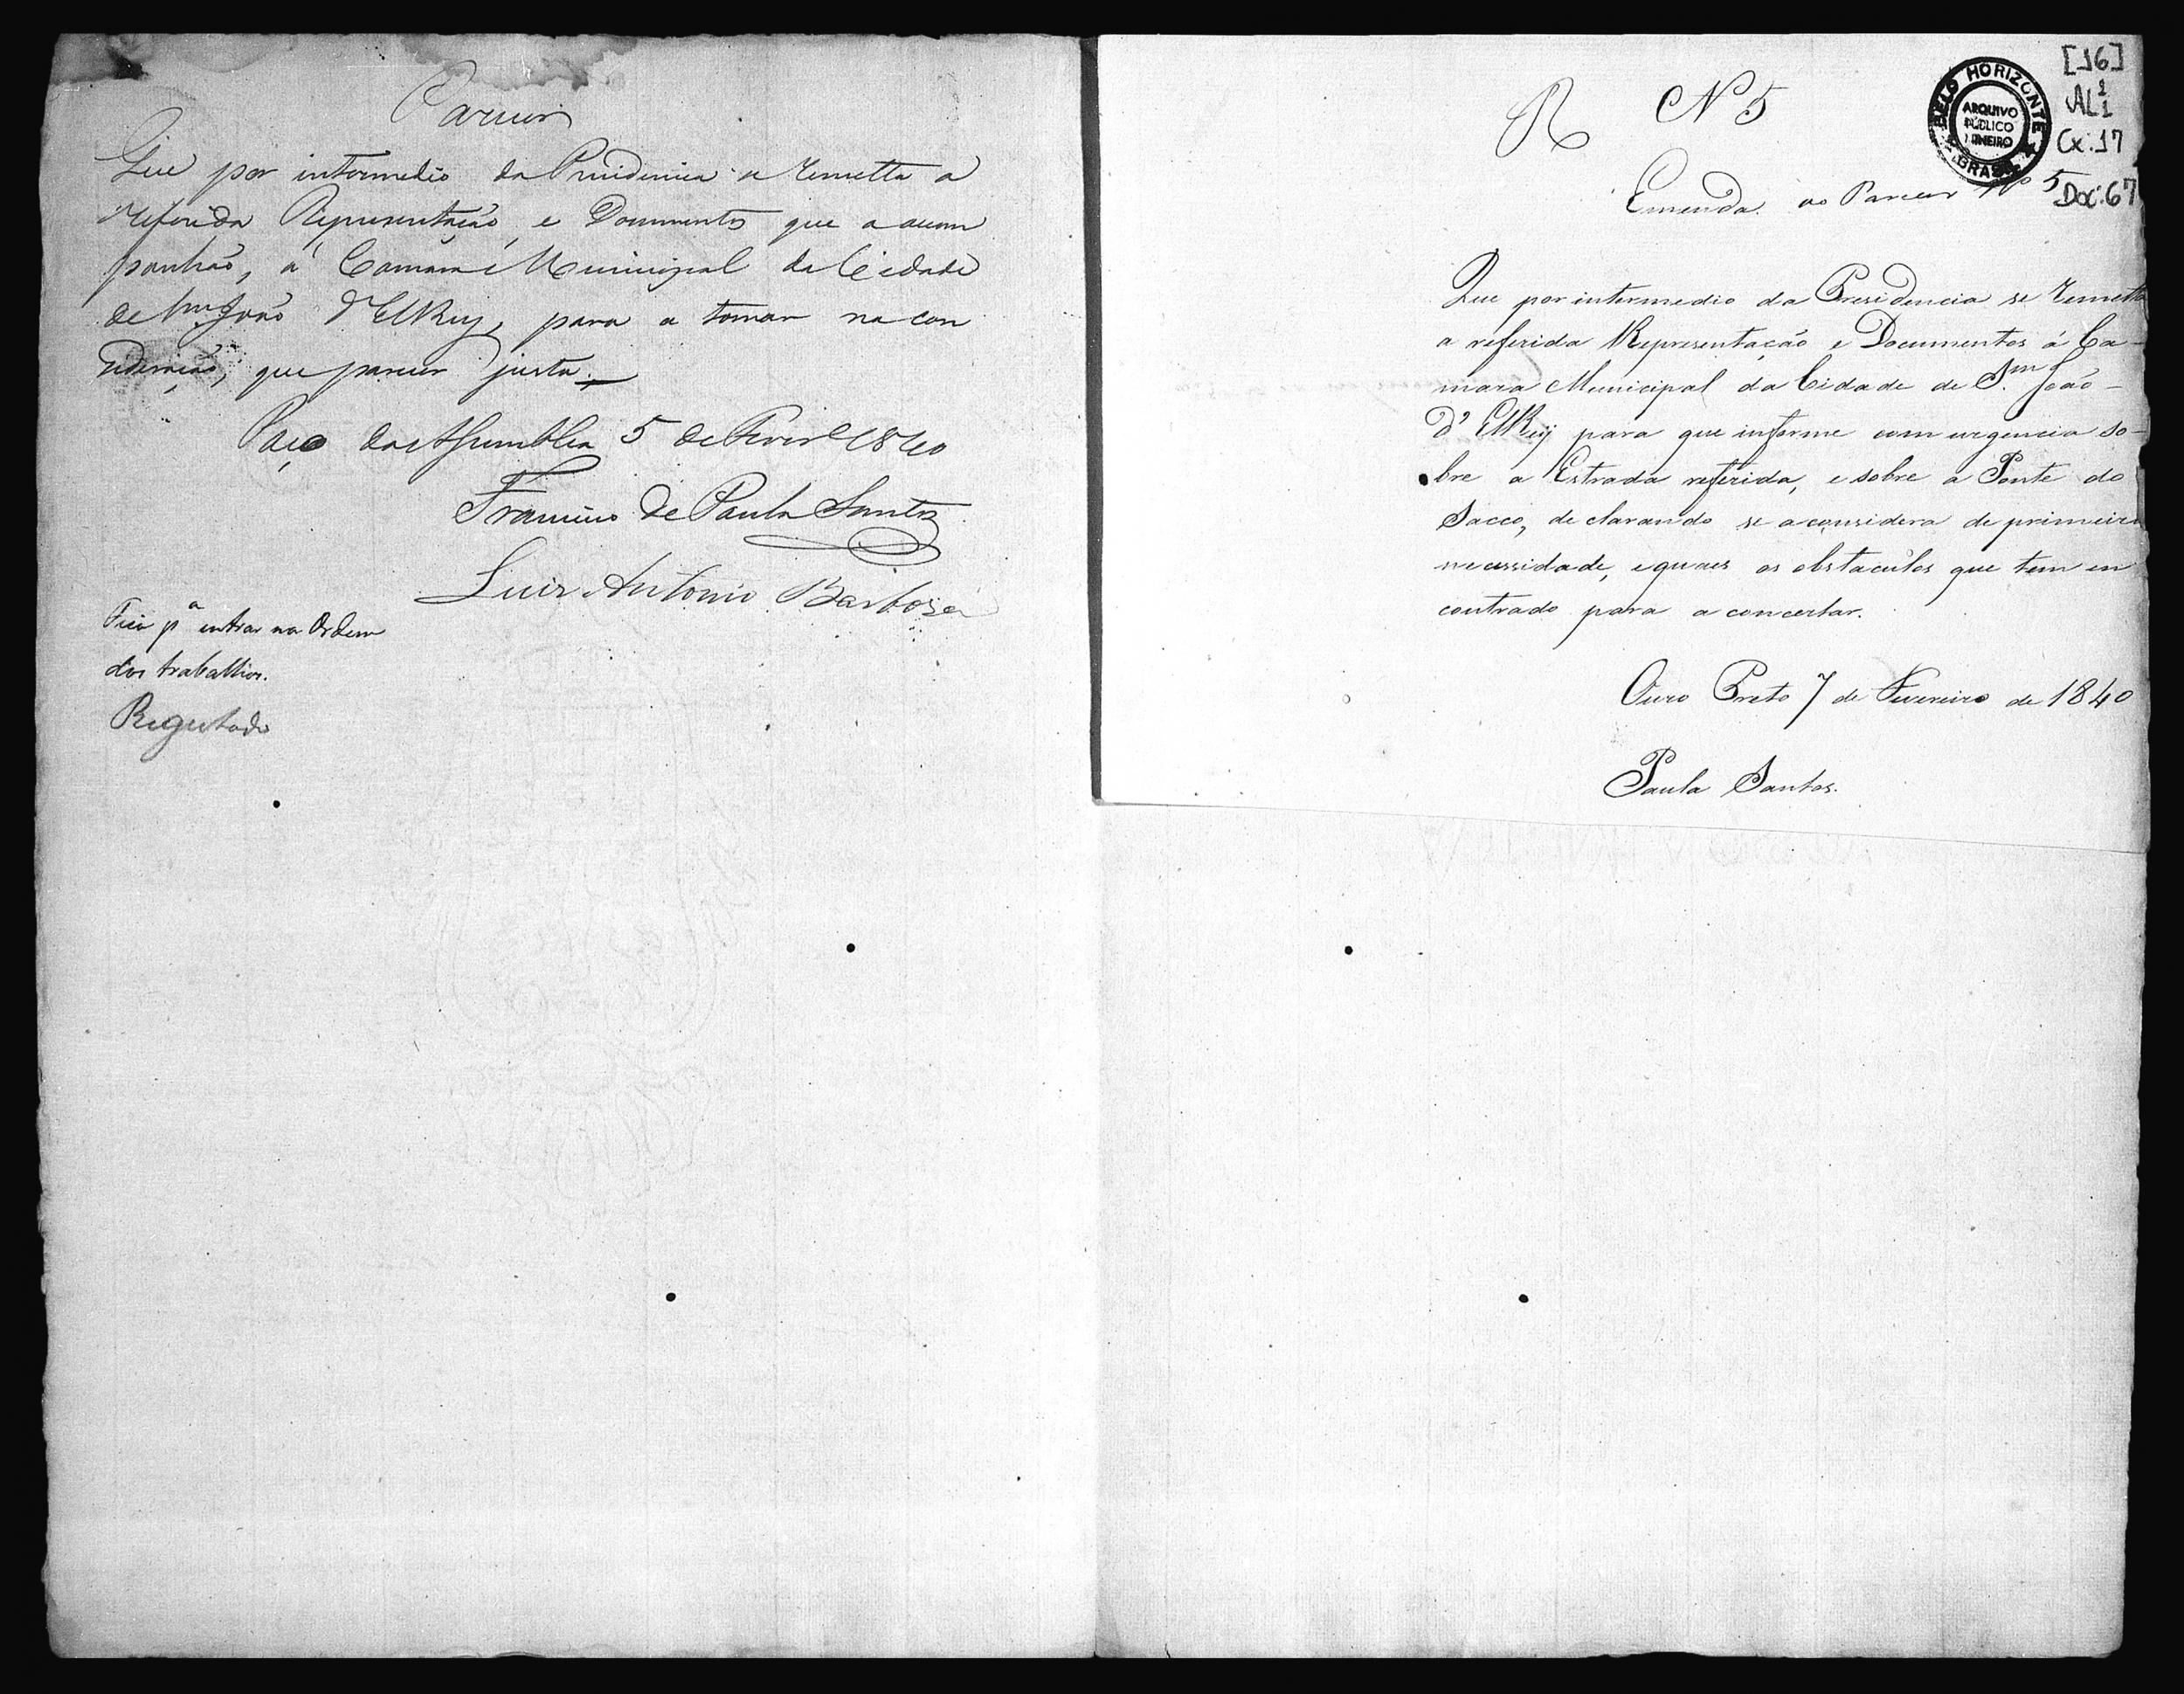 Parecer
Que por intermedio da Presidencia se remetta a
referida Representação, e Documentos que a acom
panhão, á Camara Municipal da Cidade
de Sm João d'ElRey, para a tomar na con
sideração, que parecer justa.
Paço da Assemblea 5 de Fevro 1840
Francisco de Paula Santos
Luiz Antonio Barboza
Fica pa entrar na Ordem
dos trabalhos.
Regeitado
R
Nº 5
BELO HORIZONTE
ARQUIVO
PÚBLICO
MINEIRO
BRASIL
[16]
AL 1 2
Cx. 17
Doc. 67
Emenda ao Parecer Nº 5
Que por intermedio da Presidencia se remetta
a referida Representação e Documentos á Ca-
mara Municipal da Cidade de S.m João-
D' ElRey para que informe com urgencia so-
bre a Estrada referida, e sobre a Ponte do
Sacco, declarando se a considera de primeira
necessidade, e quaes os obstaculos que tem en
contrado para a concertar.
Ouro Preto 7 de Fevereiro de 1840
Paula Santos.